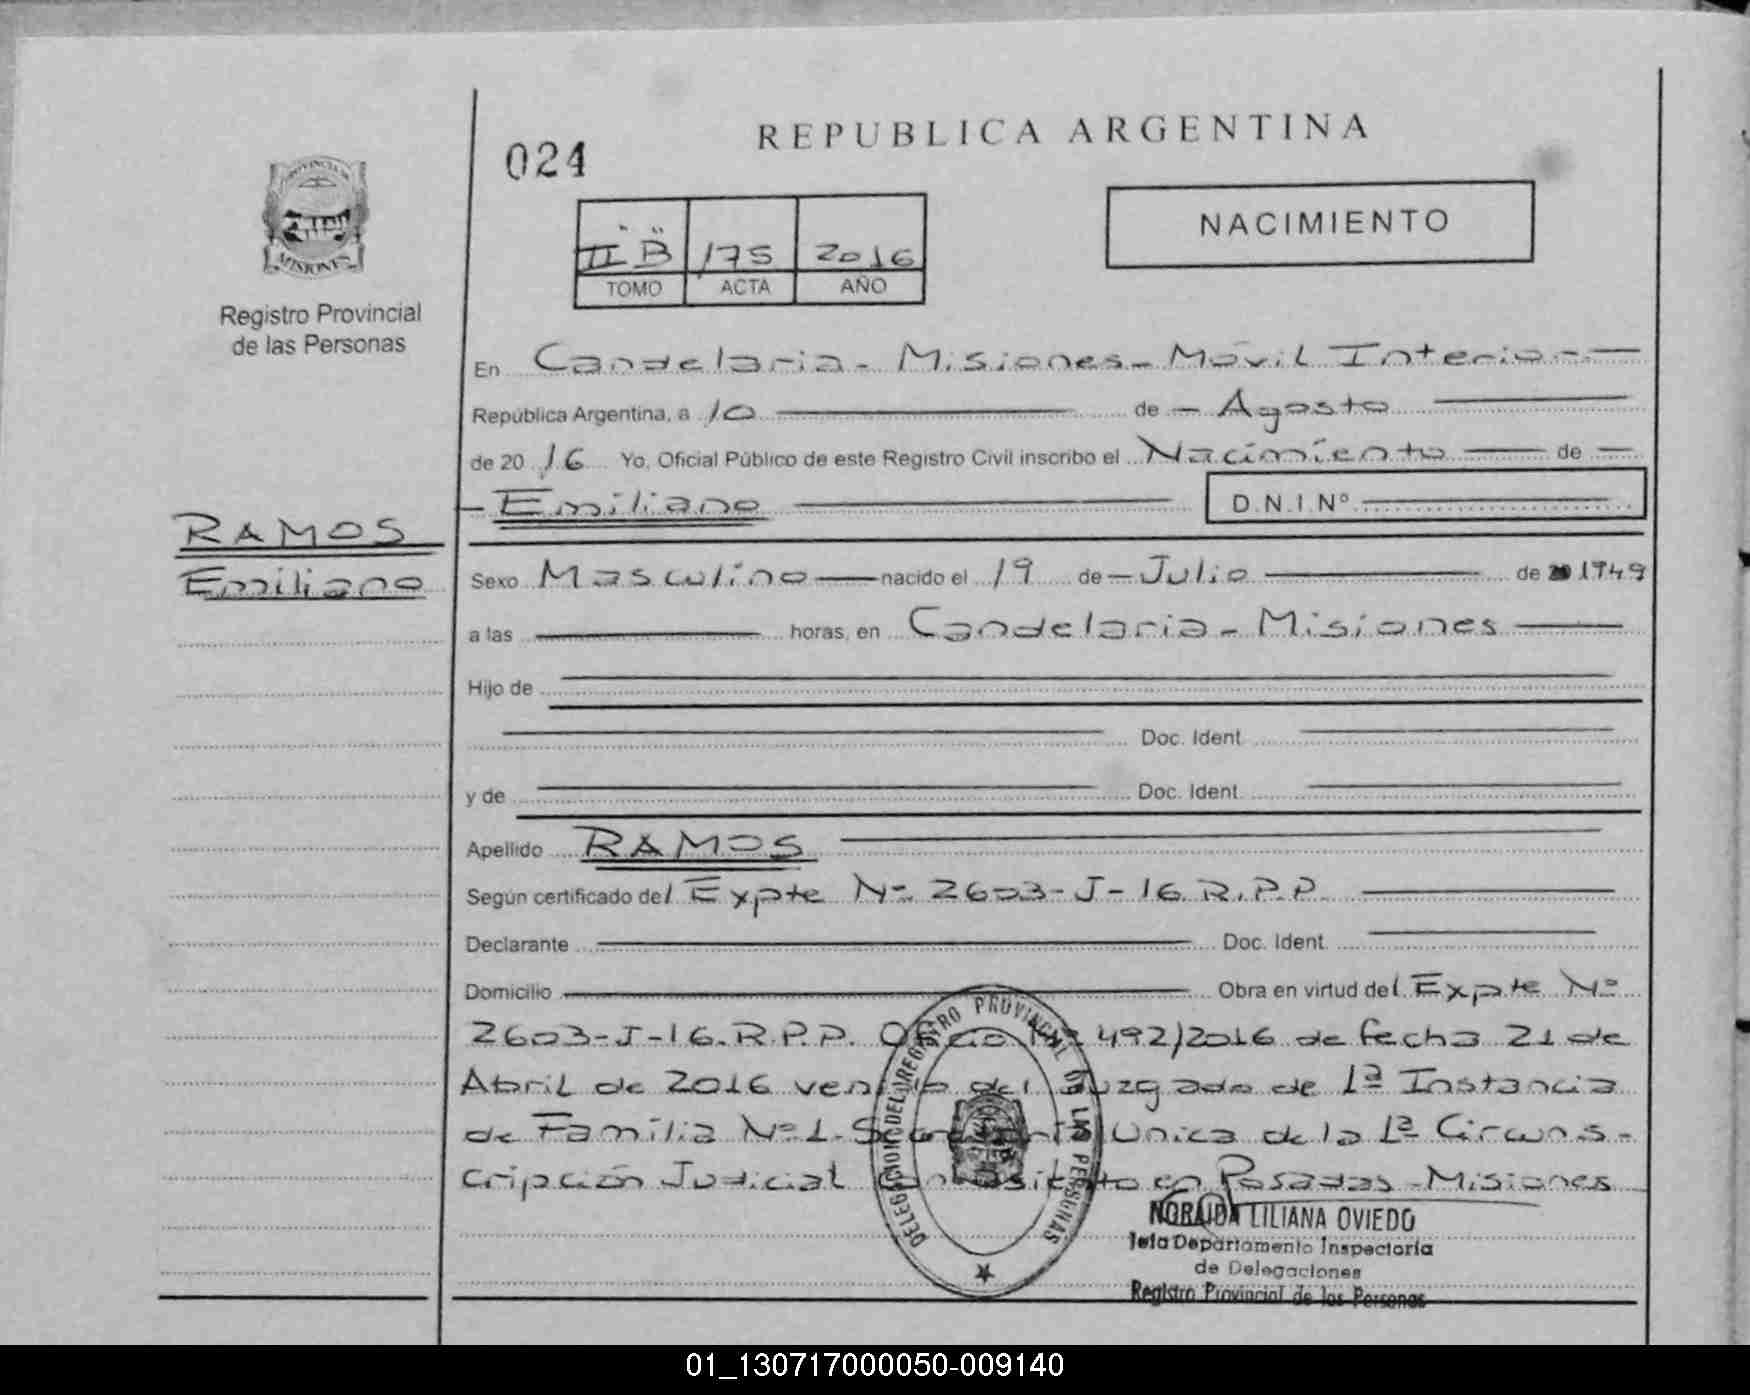 REPUBLICA ARGENTINA
024
PROVINCIA DE
MISIONES
Registro Provincial
de las Personas
NACIMIENTO
II "B" 175 2016
TOMO ACTA AÑO
En Candelaria - Misiones - Móvil Interio -
República Argentina, a 10 de - Agosto
de 20 16 Yo, Oficial Público de este Registro Civil inscribo el Nacimiento de
- Emiliano D.N.I. Nº
RAMOS
Emiliano
Sexo Masculino nacido el 19 de - Julio de 1949
a las horas, en Candelaria - Misiones
Hijo de
Doc. Ident.
y de Doc. Ident.
Apellido RAMOS
Según certificado del Expte Nº 2603-J-16.R.P.P.
Declarante Doc. Ident.
Domicilio Obra en virtud del Expte Nº
2603-J-16.R.P.P. Oficio Nº 492/2016 de fecha 21 de
Abril de 2016 venido del Juzgado de 1ª Instancia
de Familia Nº 1. Secretaría Unica de la 1ª Circuns-
cripción Judicial con asiento en Posadas - Misiones
DELEGACION DEL REGISTRO PROVINCIAL DE LAS PERSONAS
NORAIDA LILIANA OVIEDO
Jefa Departamento Inspectoría
de Delegaciones
Registro Provincial de las Personas
01_130717000050-009140